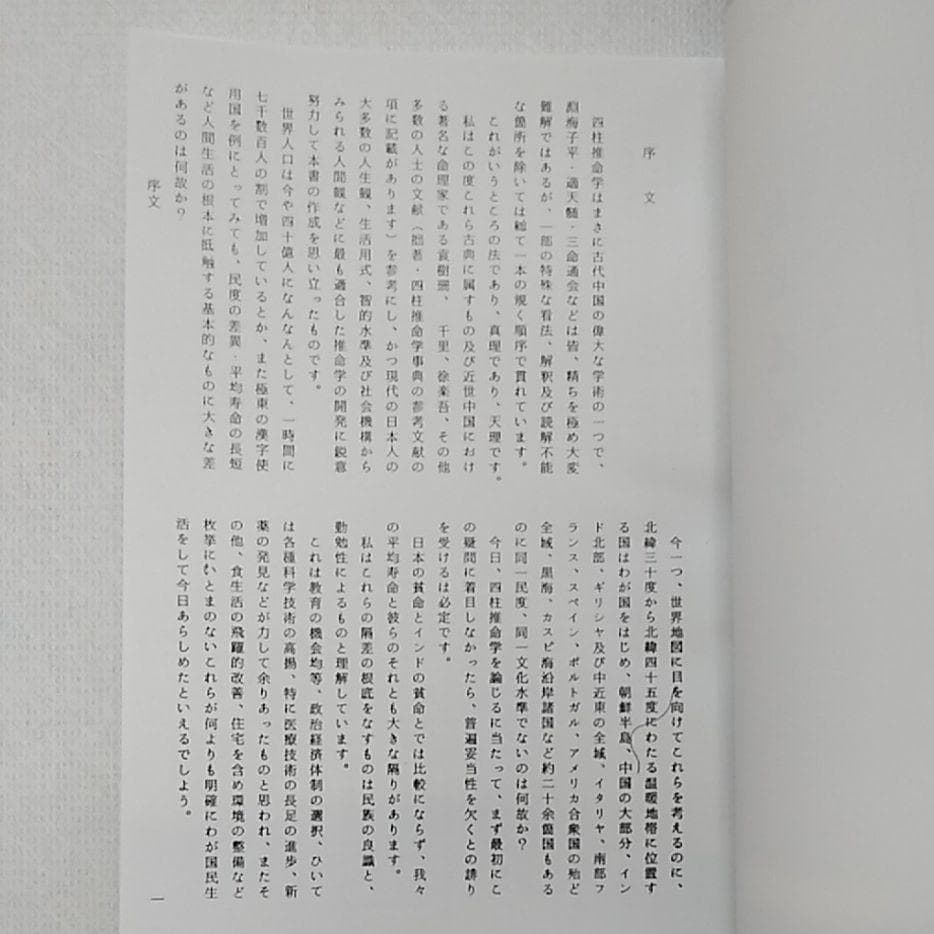 序文
四柱推命学はまさに古代中国の偉大な学術の一つで、
淵海子平・適天髄・三命通会などは皆、精ちを極め大変
難解ではあるが、一部の特殊な看法、解釈及び読解不能
な箇所を除いては総て一本の規く順序で貫れています。
これがいうところの法であり、真理であり、天理です。
私はこの度これら古典に属すもの及び近世中国におけ
る著名な命理家である袁樹珊、 千里、徐楽吾、その他
多数の人士の文献（拙著・四柱推命学事典の参考文献の
項に記載があります）を参考にし、かつ現代の日本人の
大多数の人生観、生活用式、智的水準及び社会機構から
みられる人間観などに最も適合した推命学の開発に鋭意
努力して本書の作成を思い立ったものです。
世界人口は今や四十億人になんなんとして、一時間に
七千数百人の割で増加しているとか、また極東の漢字使
用国を例にとってみても、民度の差異・平均寿命の長短
など人間生活の根本に抵触する基本的なものに大きな差
があるのは何故か？
今一つ、世界地図に目を向けてこれらを考えるのに、
北緯三十度から北緯四十五度にわたる温暖地帯に位置す
る国はわが国をはじめ、朝鮮半島、中国の大部分、イン
ド北部、ギリシャ及び中近東の全域、イタリヤ、南部フ
ランス、スペイン、ポルトガル、アメリカ合衆国の殆ど
全域、黒海、カスピ海沿岸諸国など約二十余箇国もある
のに同一民度、同一文化水準でないのは何故か？
今日、四柱推命学を論じるに当たって、まず最初にこ
の疑問に着目しなかったら、普遍妥当性を欠くとの誹り
を受けるは必定です。
日本の貧命とインドの貧命とでは比較にならず、我々
の平均寿命と彼らのそれとも大きな隔りがあります。
私はこれらの隔差の根底をなすものは民族の良識と、
勤勉性によるものと理解しています。
これは教育の機会均等、政治経済体制の選択、ひいて
は各種科学技術の高揚、特に医療技術の長足の進歩、新
薬の発見などが力して余りあったものと思われ、またそ
の他、食生活の飛躍的改善、住宅を含め環境の整備など
枚挙にいとまのないこれらが何よりも明確にわが国民生
活をして今日あらしめたといえるでしょう。
序文
一